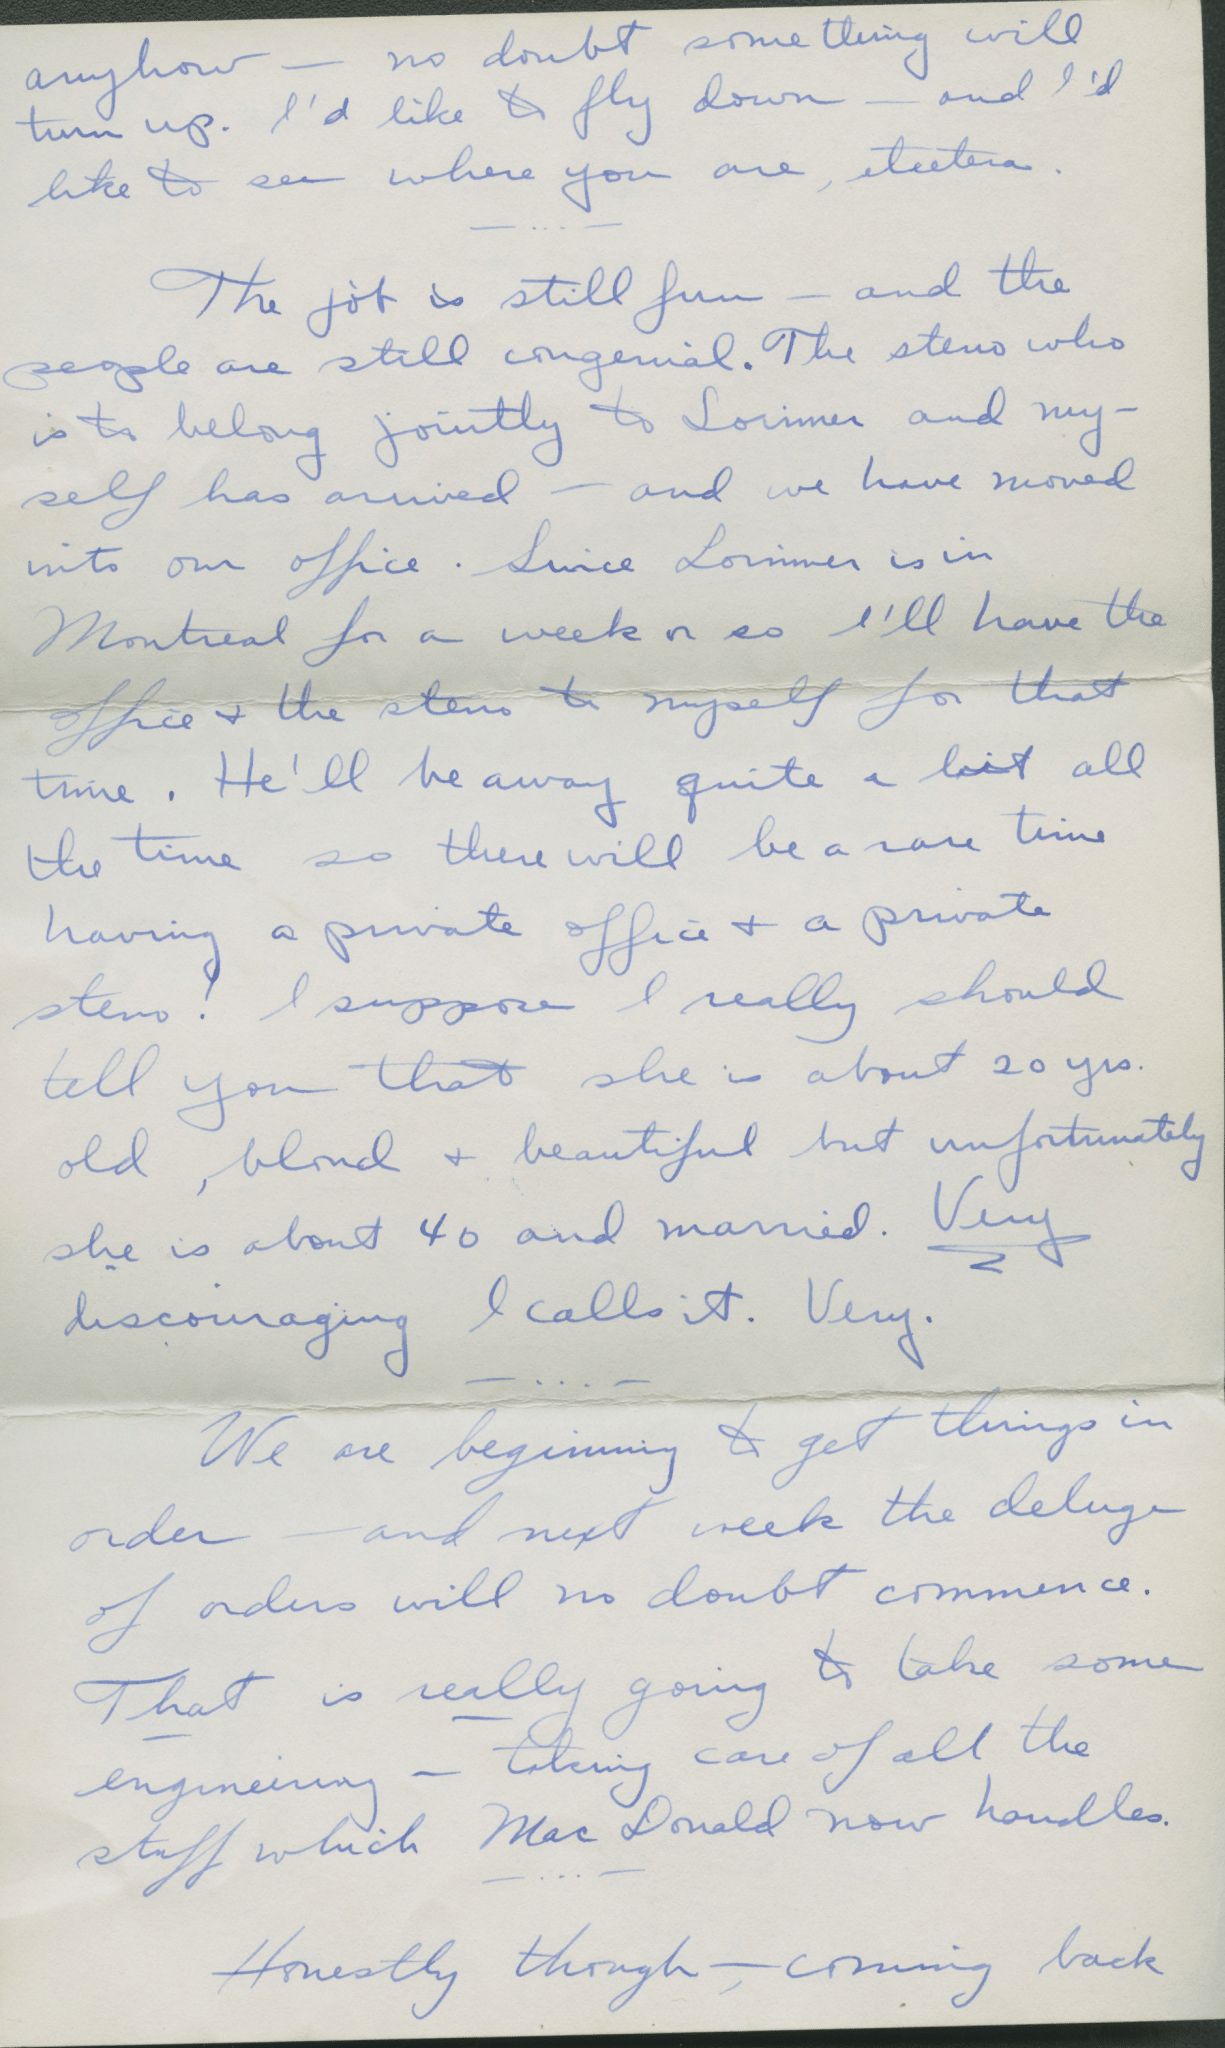 anyhow — no doubt something will
turn up. I'd like to fly down — and I'd
like to see where you are, etcetera.
— ... —
The job is still fun — and the
people are still congenial. The steno who
is to belong jointly to Lorimer and my-
self has arrived — and we have moved
into our office. Since Lorimer is in
Montreal for a week or so I'll have the
office + the steno to myself for that
time. He'll be away quite a bit all
the time so there will be a rare time
having a private office + a private
steno! I suppose I really should
tell you that she is about 20 yrs.
old, blond + beautiful but unfortunately
she is about 40 and married. Very
discouraging I calls it. Very.
— ... —
We are beginning to get things in
order — and next week the deluge
of orders will no doubt commence.
That is really going to take some
engineering — taking care of all the
stuff which MacDonald now handles.
— ... —
Honestly though — coming back